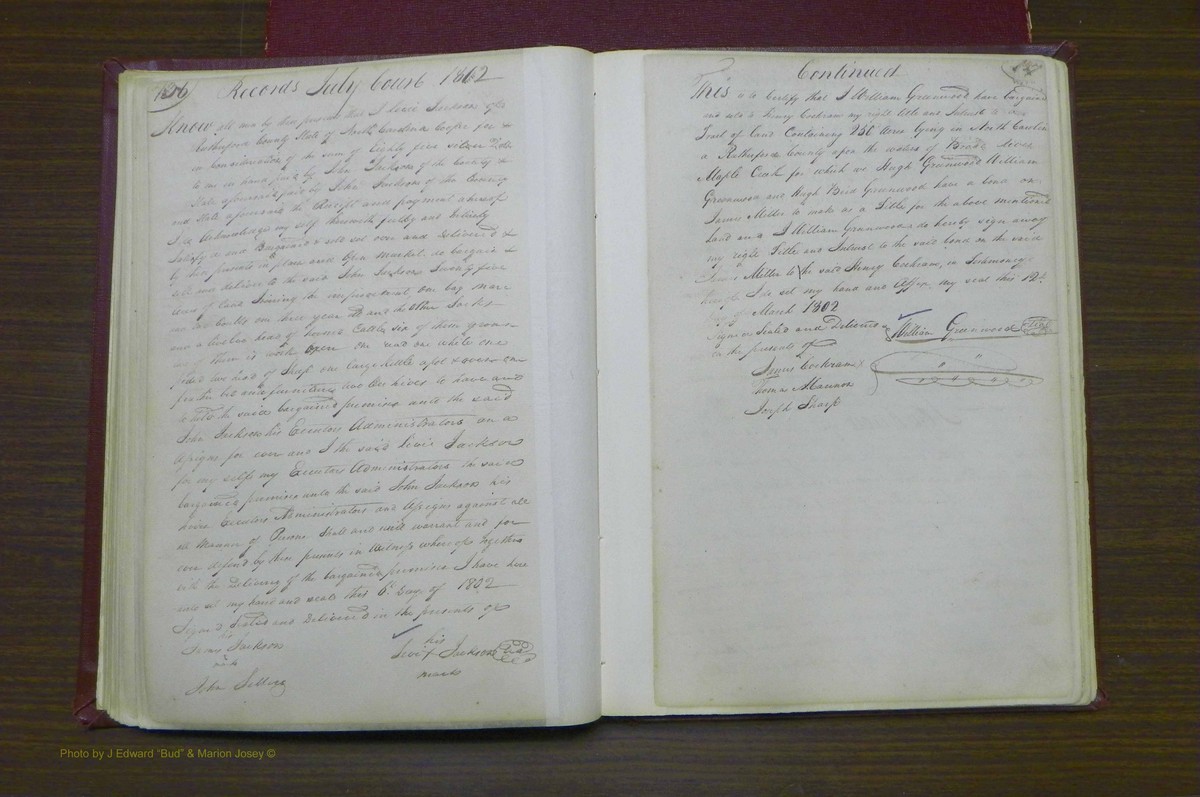 136 Records July Court 1802
Know all men by these presents that I Levi Jackson of
Rutherford County State of North Carolina
in Consideration of the sum of Eighty five Silver
to me in hand paid by John Jackson of the County &
State aforesaid paid by John Jackson of the County
and State aforesaid the Receipt and payment whereof
I do Acknowledge my self therewith fully and Intirely
Satisfy'd and Bargained & sold set over and Delivered &
by these presents in plain and Open Market do bargain &
sell and deliver to the said John Jackson Twenty five
Acres of land Joining the improvement one bay mare
one three year old and the other
and a twelve head of horned Cattle six of them grown
of them is work Oxen one red one white one
two head of Sheep one large kettle a pot & oven one
feather bed and furniture two Bee hives to have and
to hold the said bargained premises unto the said
John Jackson his Executors Administrators on a
Assigns for ever and I the said Levi Jackson
for my self my Executors Administrators the said
bargained premises unto the said John Jackson his
heirs Executors Administrators and Assigns against all
all Manner of Persons Shall and will warrant and for
ever defend by these presents in Witness whereof together
with the Delivery of the bargained premises I have here
unto set my hand and seale this 6 Day of 1802
Signed Sealed and Delivered in the presents of
Jackson
his
Levi X Jackson Seal
mark
John
Continued
This is to Certify that I William Greenwood have bargained
and sold to Henry Cochram my right title and Interest
Tract of Land Containing 250 Acres lying in North Carolina
Rutherford County upon the waters of Broad River
Maple Creek for which we Hugh Greenwood William
Greenwood and Hugh Greenwood have a bond on
James Miller to make us a Title for the above mentioned
Land and I William Greenwood do hereby sign away
my right Title and Interest to the said bond on the said
James Miller to the said Henry Cochram, in Testimony
I do set my hand and Affix my seal this 12
Day of March 1802
Signed Sealed and Delivered
in the presents of
William Greenwood Seal
James Cochram
Thomas
Joseph Sharp
Photo by J Edward "Bud" & Marion Josey ©